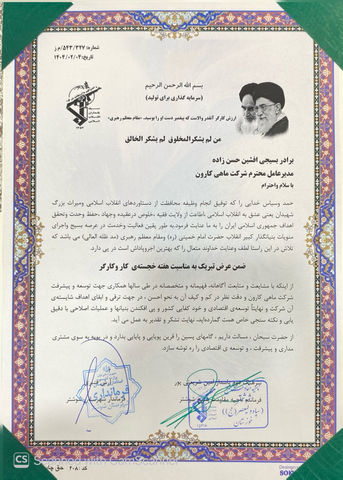 شماره: ۵۴۳/۳۲۷/م.ز
تاریخ: ۱۴۰۴/۰۲/۰۴
بسم الله الرحمن الرحیم
(سرمایه گذاری برای تولید)
ارزش کارگر آنقدر والاست که پیغمبر دست او را بوسید. «مقام معظم رهبری»
من لم یشکرالمخلوق لم یشکر الخالق
برادر بسیجی افشین حسن زاده
مدیرعامل محترم شرکت ماهی کارون
با سلام واحترام
حمد وسپاس خدایی را که توفیق انجام وظیفه محافظت از دستاوردهای انقلاب اسلامی ومیراث بزرگ
شهیدان یعنی عشق به انقلاب اسلامی ،اطاعت از ولایت فقیه ،خلوص درعقیده وجهاد ،حفظ وحدت وتحقق
اهداف جمهوری اسلامی ایران را به ما عنایت فرمودبه طور یقین فعالیت وخدمت در عرصه بسیج واجرای
منویات بنیانگذار کبیر انقلاب حضرت امام خمینی (ره) ومقام معظم رهبری (مد ظله العالی) می باشد که
تلاش در این راستا لطف وعنایت خداوند متعال را که بهترین اجروپاداش است در پی دارد.
ضمن عرض تبریک به مناسبت هفته خجسته‌ی کار وکارگر
از اینکه با متابعت و متانت آگاهانه، فهیمانه و متخصصانه در طی سالها همکاری جهت توسعه و پیشرفت
شرکت ماهی کارون و دقت نظر در کم و کیف آن به نحو احسن ، در جهت ترقی و ایفای اهداف شایسته‌ی
آن شرکت و نهایتاً توسعه‌ی اقتصادی و خود کفایی کشور و پی افکندن بنیانها و عملیات اصلاحی با دقیق
یابی و نکته سنجی خاص همت گمارده‌اید، نهایت تشکر و تقدیر به عمل می آید.
از حضرت سبحان ، مسالت داریم ، گامهای پسین را قرین پویایی و پایایی بدارد و در پویه به سوی مشتری
مداری و پیشرفت ، و توسعه ی اقتصادی را ره توشه سازد.
فرمانداری
CS Scanned with CamScanner
کد: ۲۰۸